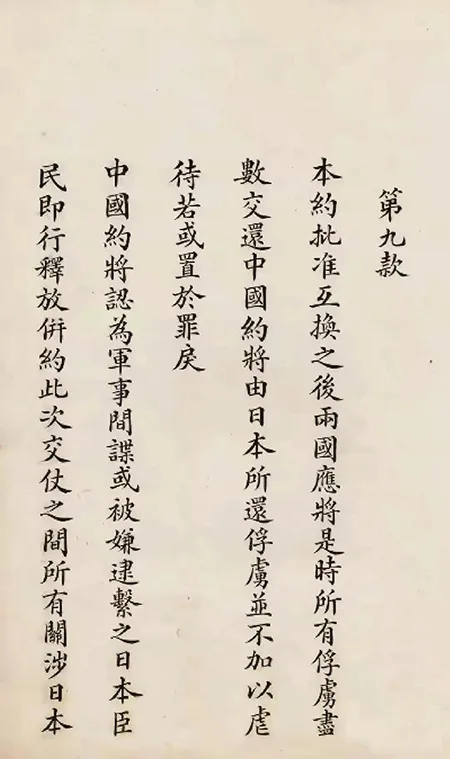 第九款
本約批准互換之後兩國應將是時所有俘虜盡
數交還中國約將由日本所還俘虜並不加以虐
待若或置於罪戾
中國約將認為軍事間諜或被嫌逮繫之日本臣
民即行釋放併約此次交仗之間所有關涉日本